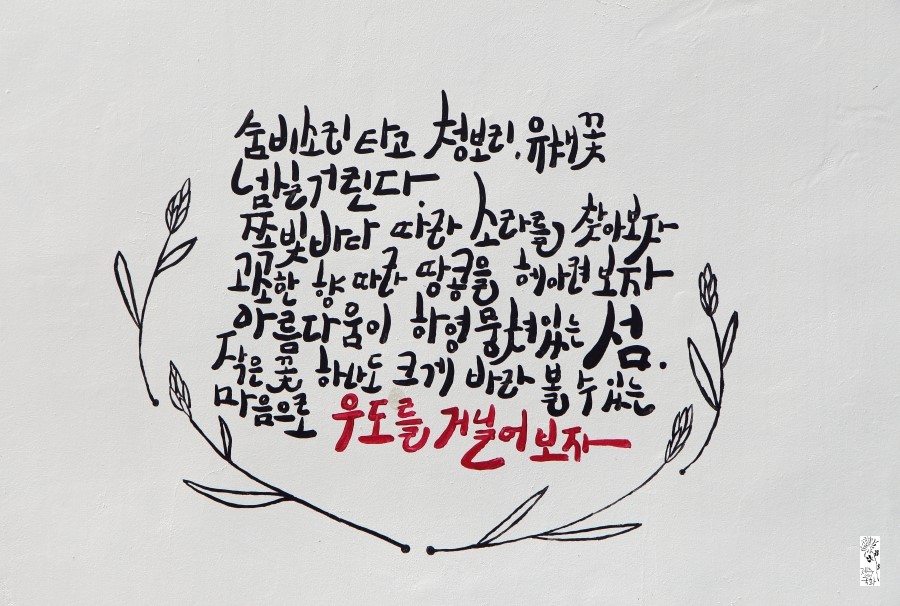 숨비소리 타고 청보리, 유채꽃
넘실거린다.
쪽빛바다 따라 소라를 찾아보자
고소한 향 따라 땅콩을 헤아려보자
아름다움이 하영 뭉쳐있는 섬.
작은 꽃 하나도 크게 바라 볼 수 있는
마음으로 우도를 거닐어보자